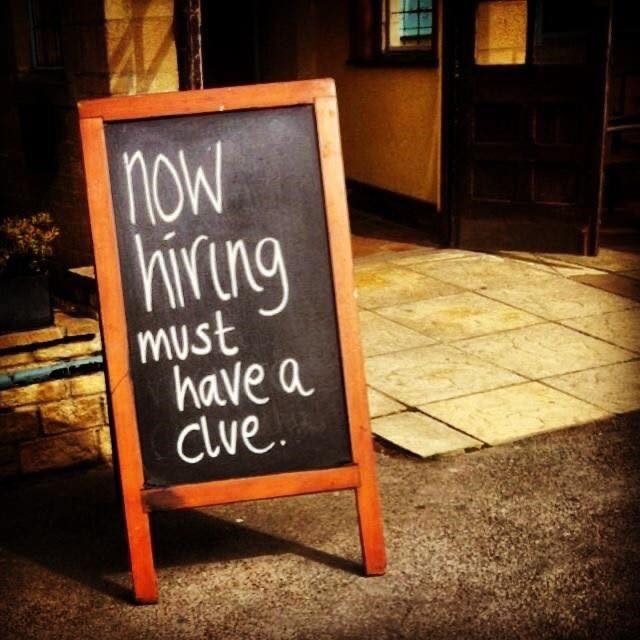 now
hiring
must
have a
clue.